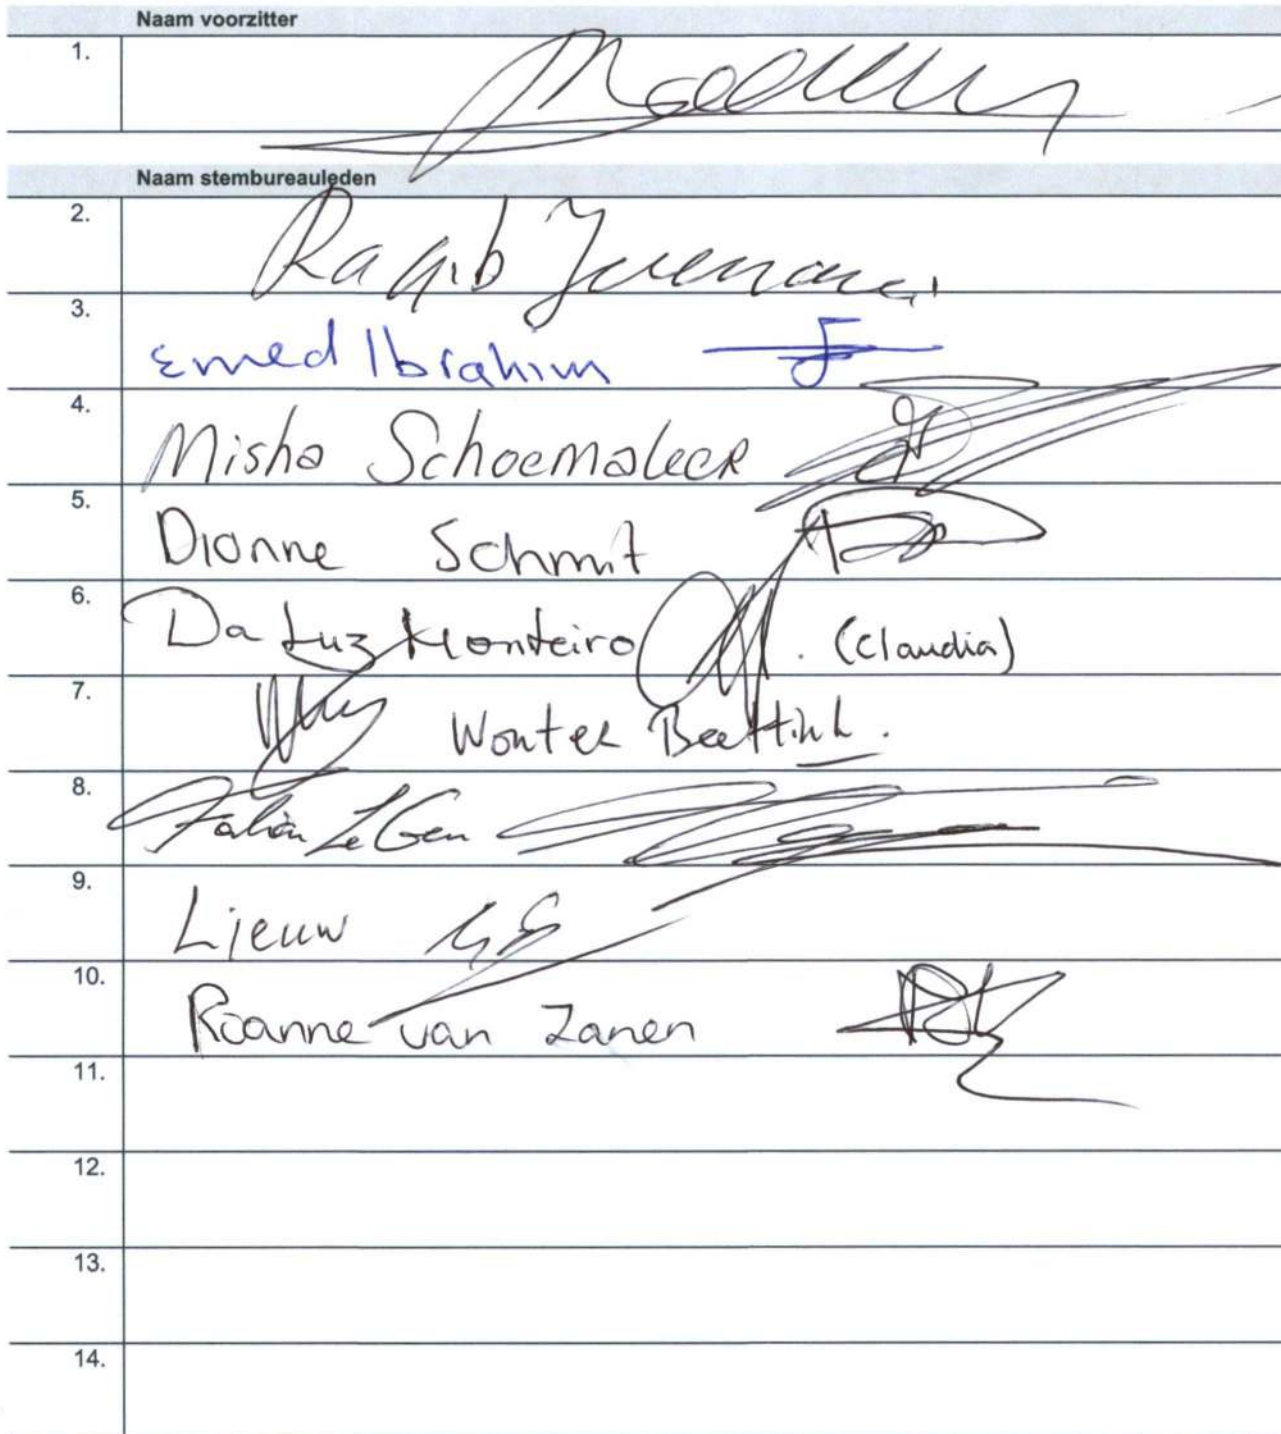 Naam voorzitter
1.
Naam stembureauleden
2. Ragib
3. Emed Ibrahim
4. Misha Schoemaker
5. Dionne Schmit
6. Da Luz Monteiro (Claudia)
7. Wouter
8. Fabian
9. Lieuw
10. Roanne van Zanen
11.
12.
13.
14.